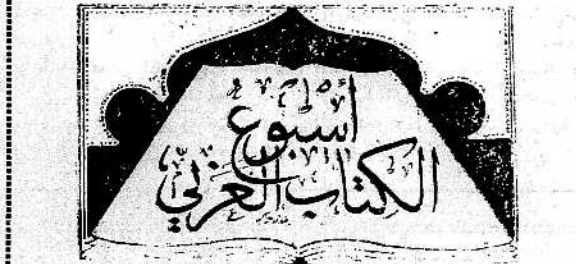 أسبوع
الكتاب العربي